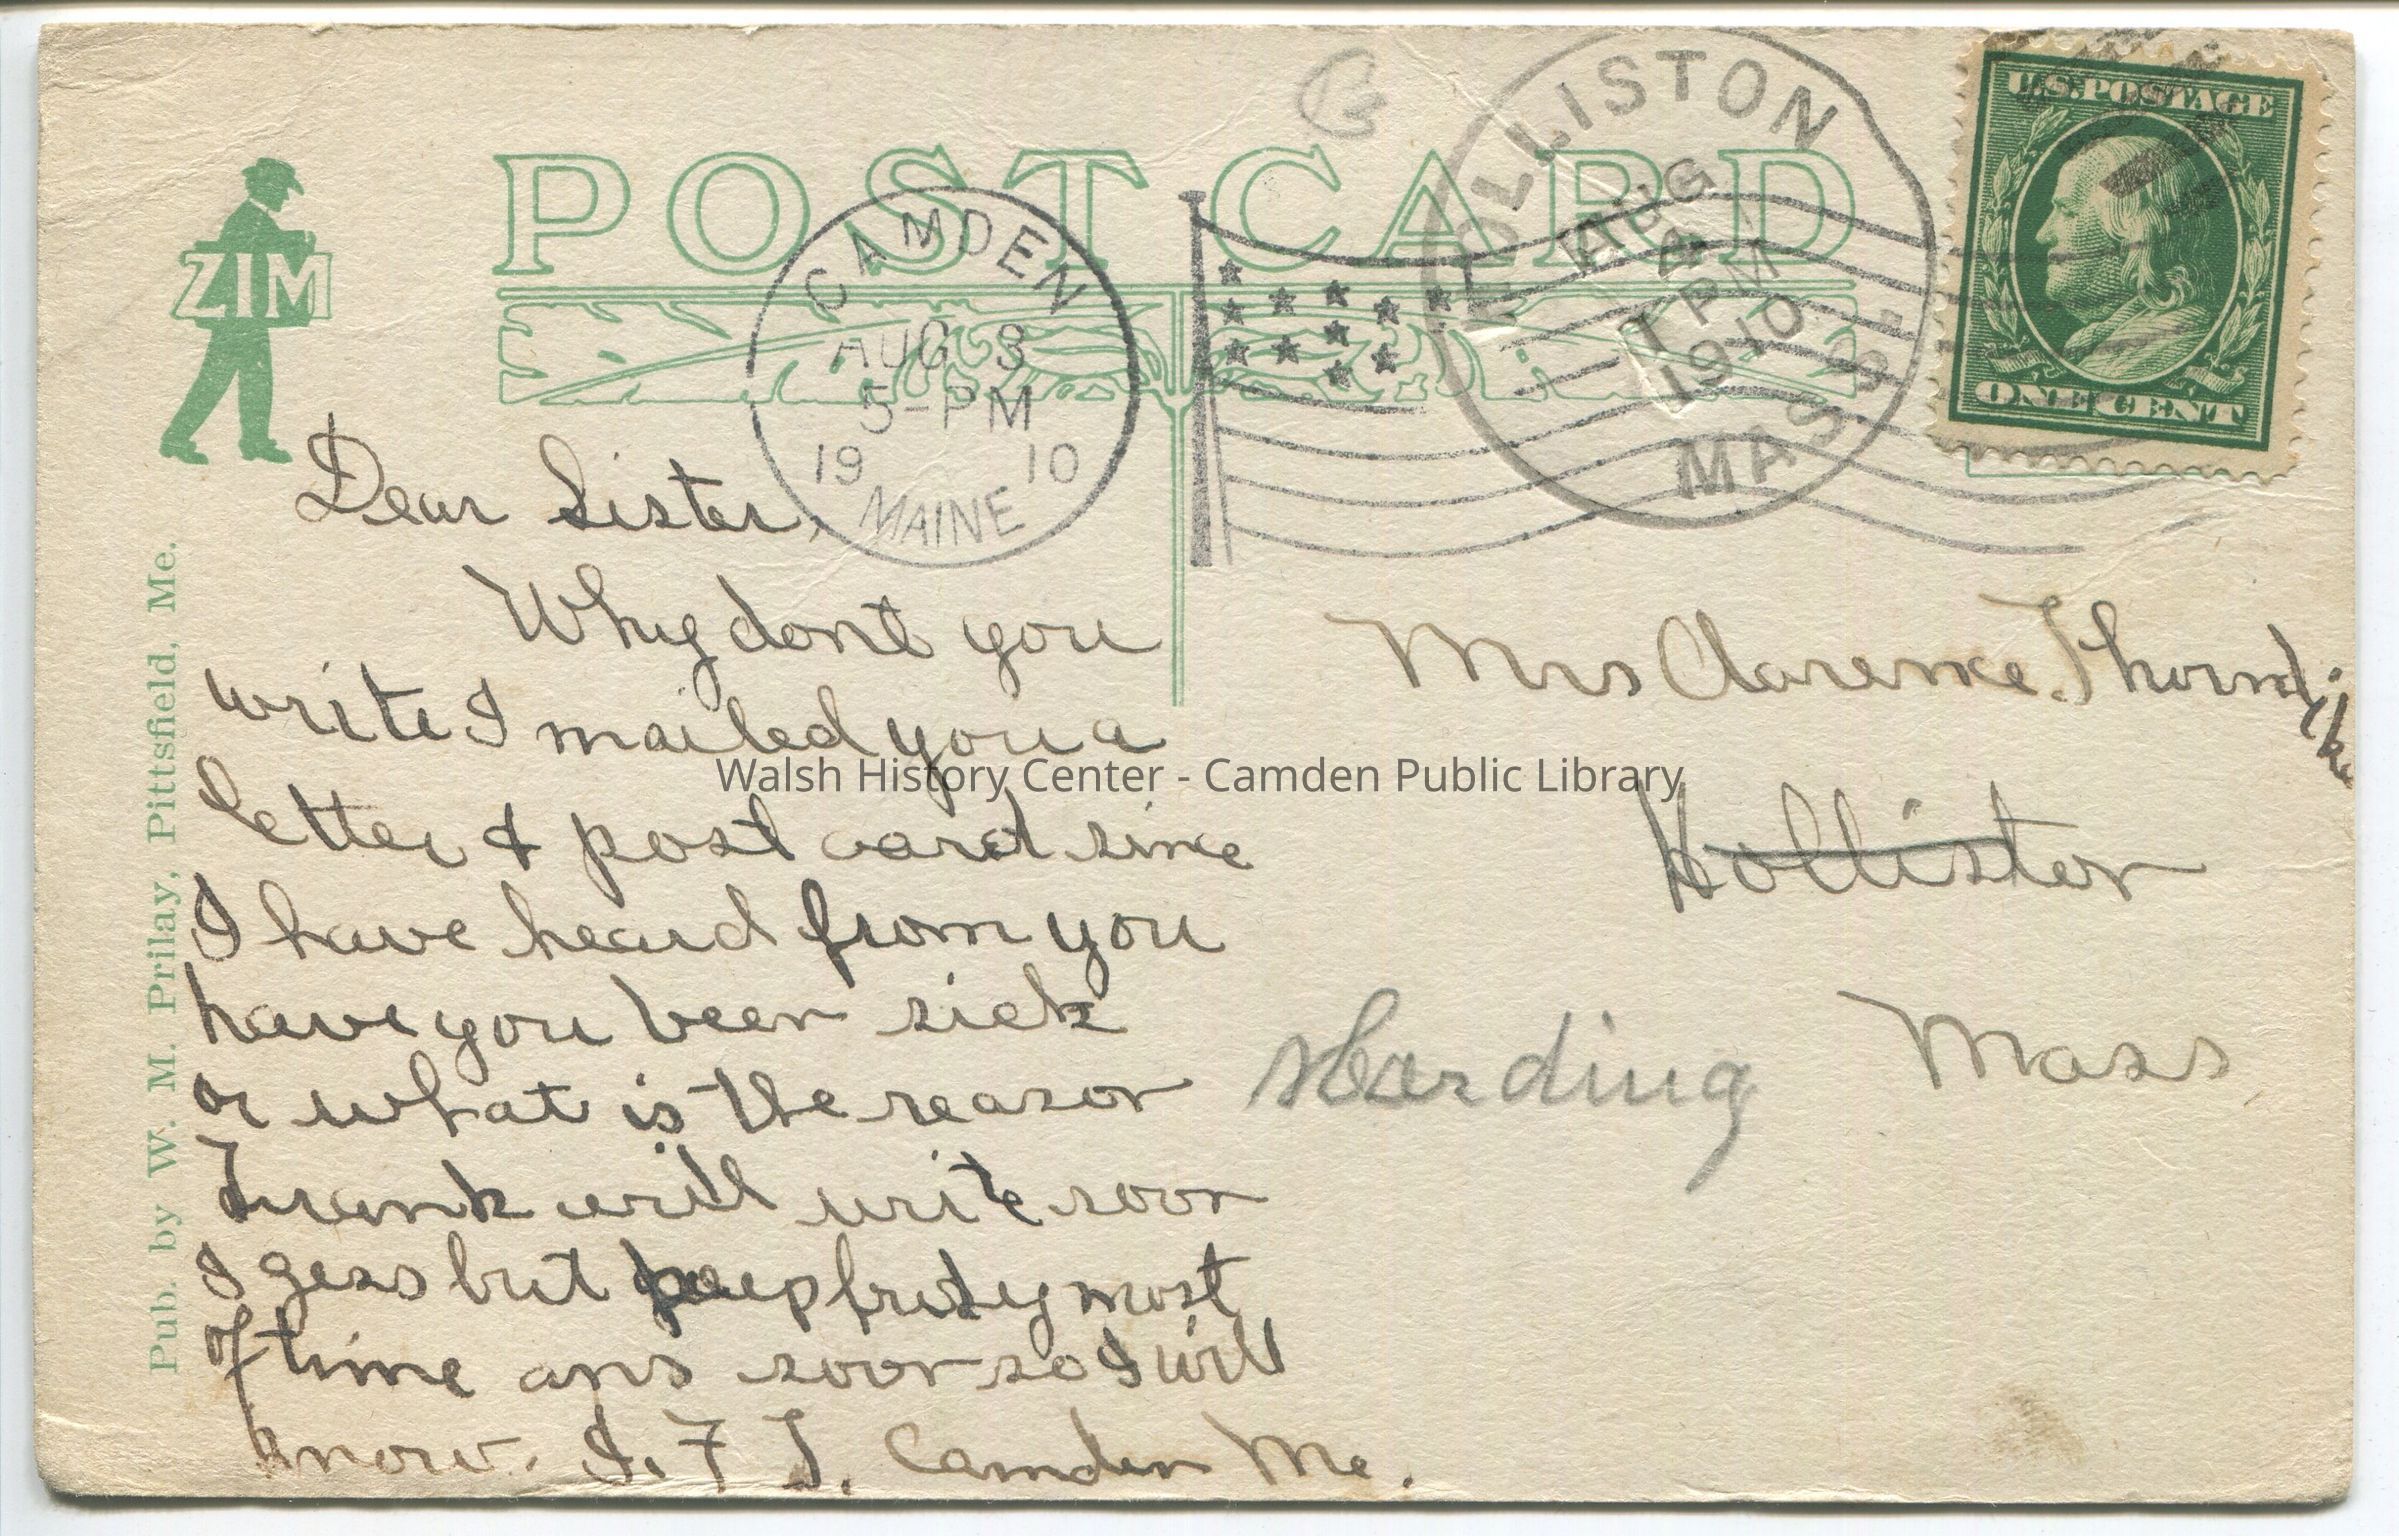 POST CARD
ZIM
CAMDEN
AUG 3
5-PM
19 10
MAINE
HOLLISTON
AUG
4
1 PM
1910
MASS.
U.S. POSTAGE
ONE CENT
Pub. by W. M. Prilay, Pittsfield, Me.
Dear Sister,
Why dont you
write I mailed you a
letter & post card since
I have heard from you
have you been sick
or what is the reason
Frank will write soon
I gess but keep busy most
of time ans soon so I will
know. I. F. T. Camden Me.
Mrs Clarence Thorndike
Hollister
Mass
Harding
Walsh History Center - Camden Public Library